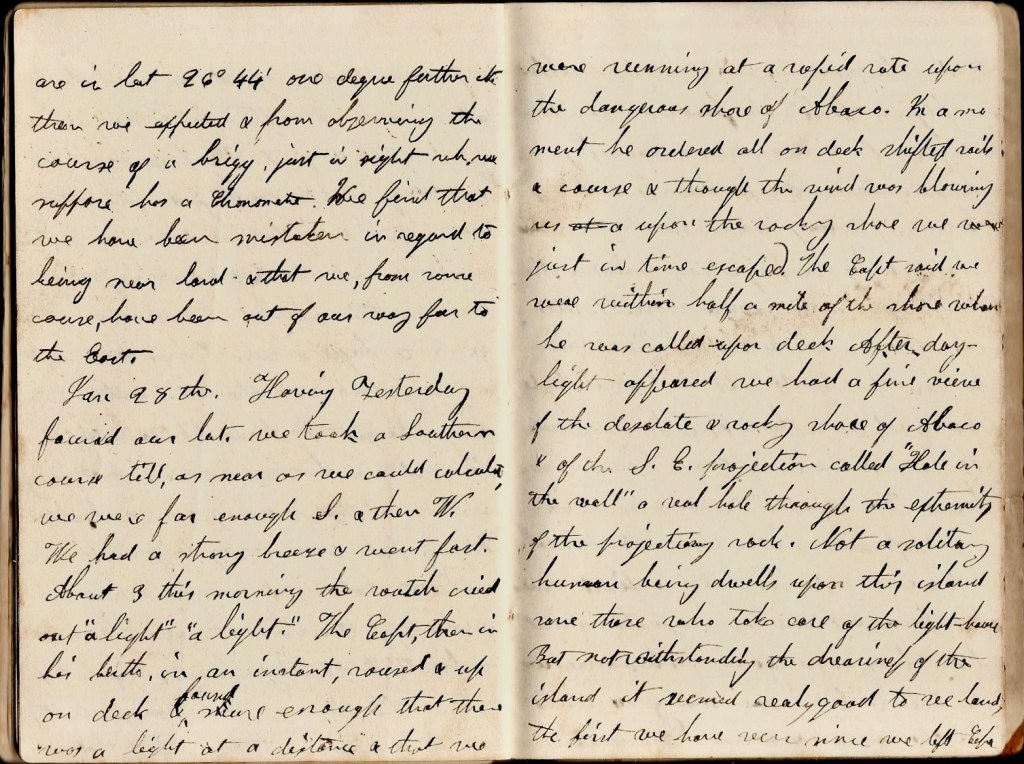 are in lat 26° 44' one degree farther N.
than we expected & from observing the
course of a brigg, just in sight wh. we
suppose has a Chronometer. We find that
we have been mistaken in regard to
being near land & that we, from some
cause, have been out of our way far to
the East.
Jan 28 th. Having Yesterday
found our lat. we took a Southern
course till, as near as we could calculate,
we were far enough S. & then W.
We had a strong breeze & went fast.
About 3 this morning the watch cried
out "a light" "a light." The Capt, then in
his berth, in an instant, roused & up
on deck & found sure enough that there
was a light at a distance & that we
were running at a rapid rate upon
the dangerous shore of Abaco. In a mo
ment he ordered all on deck shifted sails
& course & though the wind was blowing
us at a upon the rocky shore we were
just in time escaped. The Capt said we
were within half a mile of the shore when
he was called upon deck After day-
light appeared we had a fine view
of the desolate & rocky shore of Abaco
& of the S. E. projection called "Hole in
the wall" a real hole through the extremity
of the projecting rock. Not a solitary
human being dwells upon this island
save those who take care of the light-house
But notwithstanding the dreariness of the
island it seemed realy good to see land,
the first we have seen since we left Cape